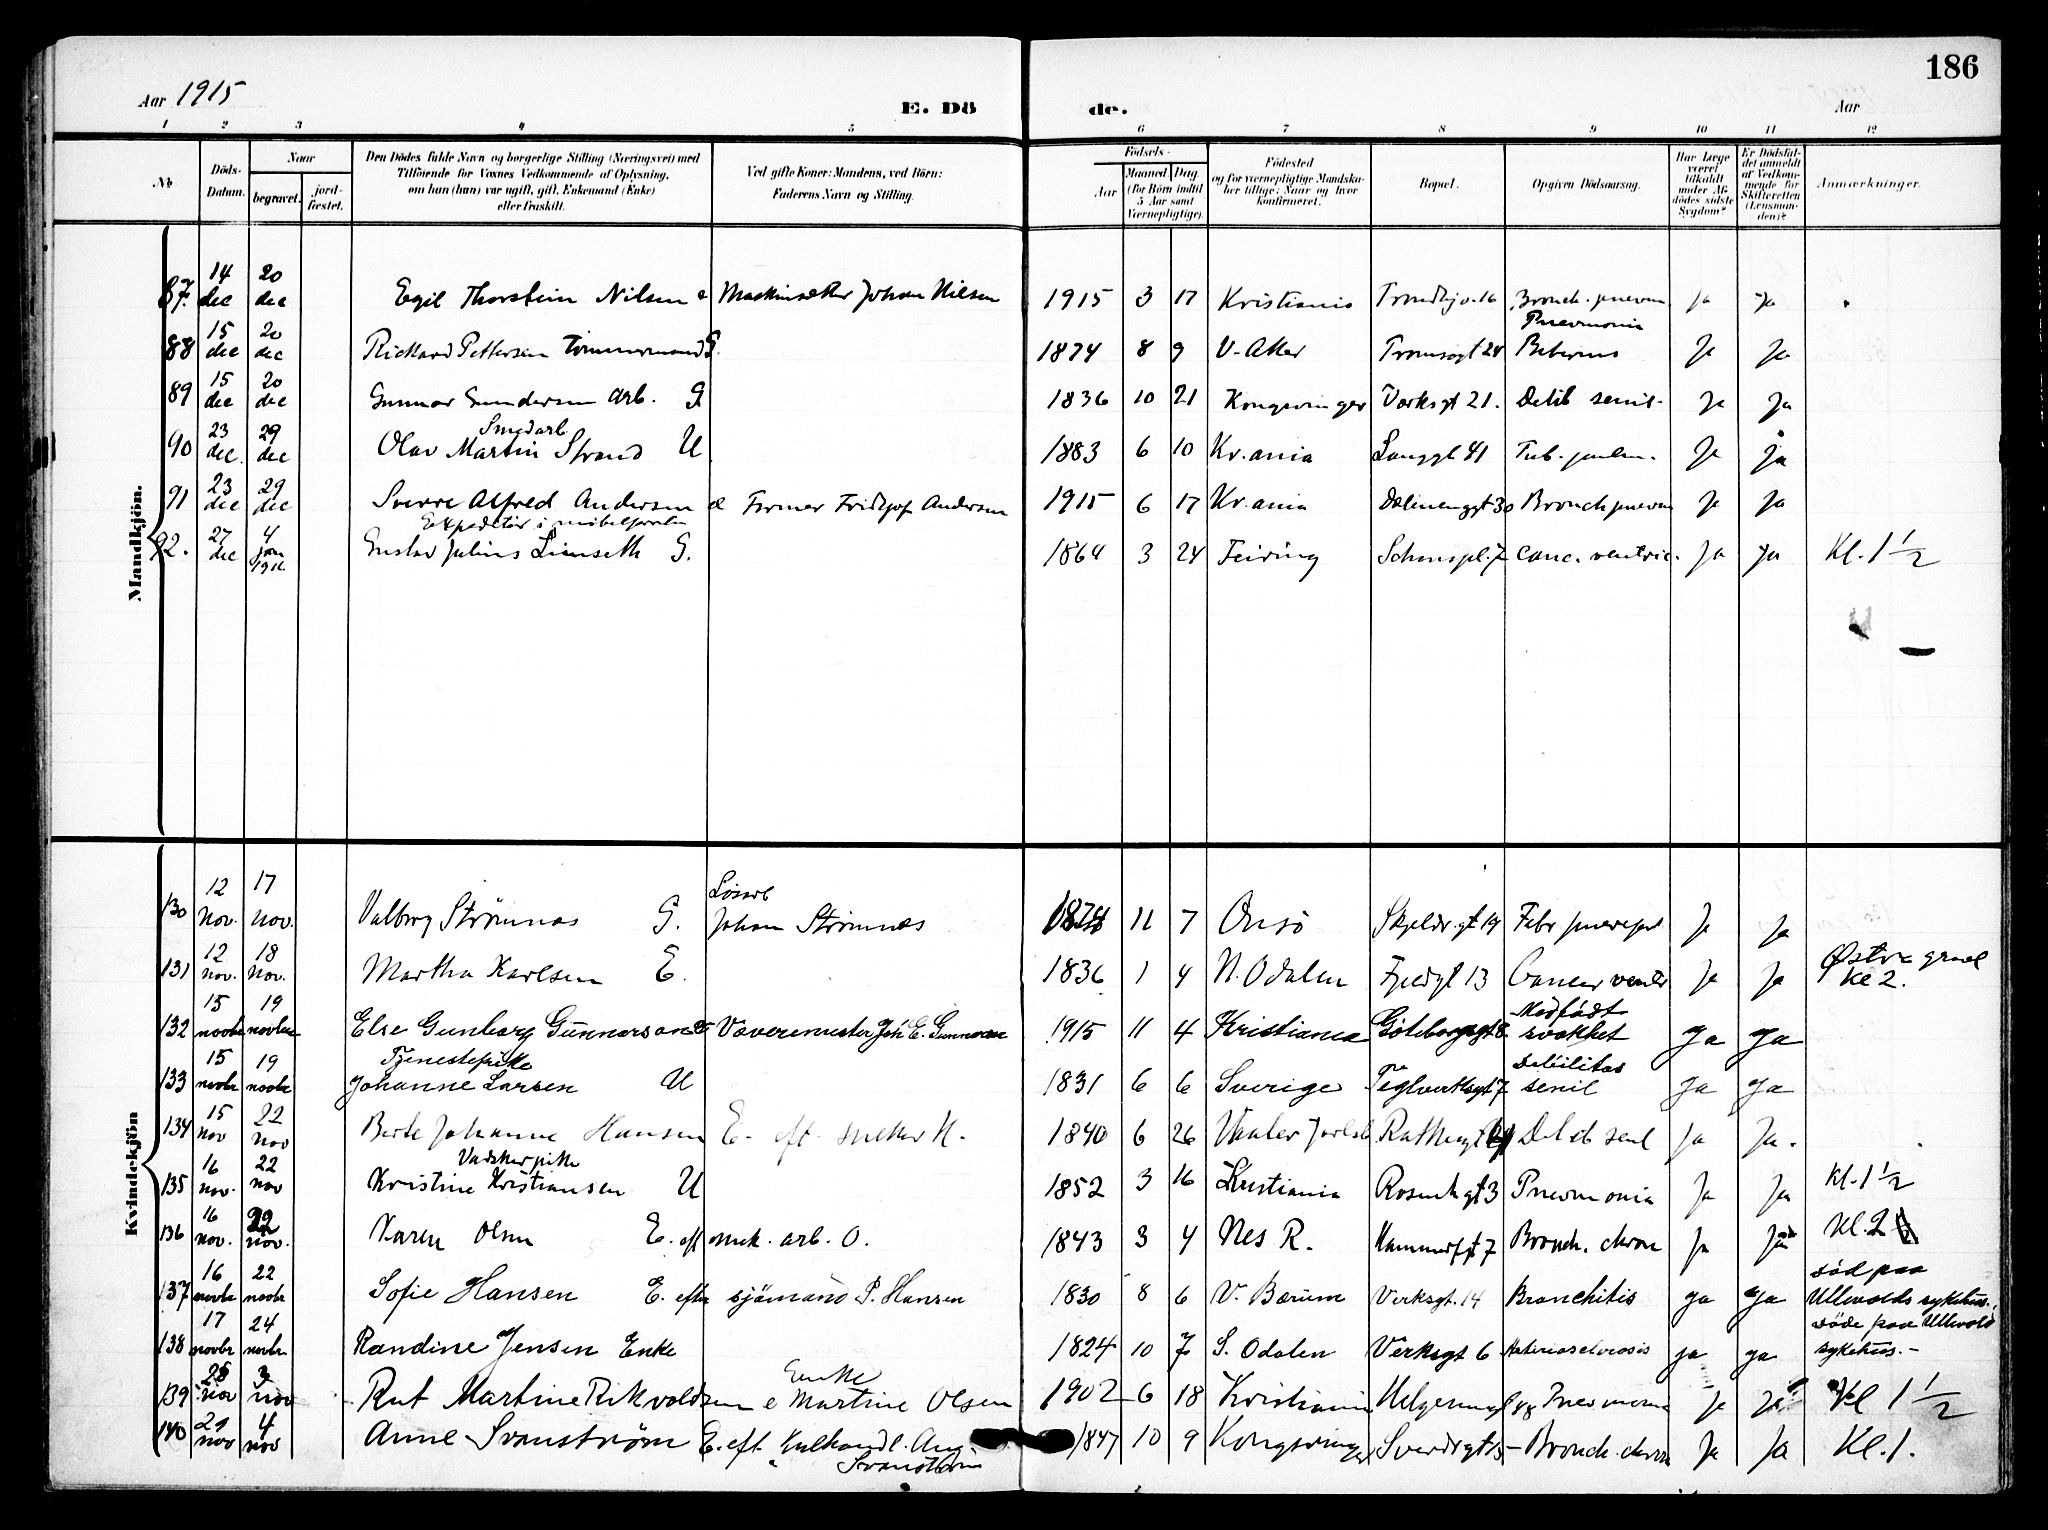 186
Aar 1915
E. Dö de.
Aar
1 2 3 4 5 6 7 8 9 10 11 12
No
Döds-Datum.
Naar
begravet.
jord-fæstet.
Den Dödes fulde Navn og borgerlige Stilling (Næringsvei) med
Tilföiende for Voxnes Vedkommende af Oplysning,
om han (hun) var ugift, gift, Enkemand (Enke)
eller fraskilt.
Ved gifte Koner: Mandens, ved Börn:
Faderens Navn og Stilling.
Födsels-
Aar
Maaned Dag
(for Börn indtil
5 Aar samt
Værnepligtige).
Födested
og for værnepligtige Mandska-
ber tillige: Naar og hvor
konfirmeret.
Bopæl.
Opgiven Dödsaarsag.
Har Læge
været
tilkaldt
under Af-
dödes sidste
Sygdom?
Er Dödsfal-
det anmeldt
af Vedkom-
mende for
Skifteretten
(Lensman-
den)?
Anmærkninger.
Mandkjön.
87. 14 dec 20 dec Egil Thorstein Nilsen e Johan Nilsen 1915 3 17 Kristiania Trondhj.v. 16 Bronch. pneum ja ja
88 15 dec 20 dec Rickard Pettersen Tømmermand G. 1874 8 9 V-Aker Tromsøgt 24 Pneumonia ja ja
89 15 dec 20 dec Gunnar Gundersen Arb. G 1836 10 21 Kongsvinger Verksgt 21. Debil senil. ja ja
Smedarb
90 23 dec. 29 dec Olav Martin Strand U 1883 6 10 Kr.ania Langgt 41 Tub. pulm. ja ja
91 23 dec 29 dec Sverre Alfred Andersen e Former Fridtjof Andersen 1915 6 17 Kr.ania Dælenenggt 30 Bronch pneum ja ja
Expeditør i
92. 27 dec 4 jan Gustav Julius Limseth G. 1864 3 24 Feiring Schouspl. 7 Canc. ventric. ja ja Kl. 1 1/2
Kvindekjön
130 12 nov. 17 nov. Valborg Strømnæs G. Johan Strømnæs 11 7 Onsø Skjeldr.gt 19 Febr puerper ja ja
131 12 nov. 18 nov. Martha Karlsen E. 1836 1 4 N. Odalen 13 Cancer ventr ja ja Østre grav Kl 2.
132 15 novbr 19 novbr Else Gunborg Gunnarson e Vævermester Joh. E. Gunnarson 1915 11 4 Kristiania Göteborggt 8 Medfødt svakhet ja ja
Tjenestepike
133 15 novbr 19 novbr Johanne Larsen U 1831 6 6 Sverige Teglverksgt 7 Debilitas senil ja ja
134 15 nov 22 nov Berte Johanne Hansen E. eft. snekker H. 1840 6 26 Vaaler Jarlsb Debil senil ja ja.
Vaskerpike
135 16 nov. 22 nov Kristine Kristiansen U 1852 3 16 Kristiania Rosenh.gt 3 Pneumonia ja ja Kl. 1 1/2
136 16 nov. 22 nov. Karen Olsen E. eft mek. arb. O. 1843 3 4 Nes R. Hammerf.gt 7 Bronch. chron ja ja Kl. 2
137 16 novbr 22 novbr Sofie Hansen E. efter sjömand P. Hansen 1830 8 6 V. Bærum Verksgt. 14 Bronchitis ja ja död paa Ullevolds sykehus.
138 17 novbr 24 novbr Randine Jensen Enke 1824 10 7 S. Odalen Verksgt 6 Arteriosclerosis ja ja döde paa Ullevold sykehus.-
139 nov nov Rut Martine Rikvoldsen e Enke Martine Olsen 1902 6 18 Kristiania Pneumonia ja ja Kl 1 1/2
140 nov 4 nov Anne Svanstrøm E. eft. Kulhandl. Aug. Svanstrøm 1847 10 9 Kongsvinger Sverdr.gt 15 Bronch. chron ja ja Kl. 1.